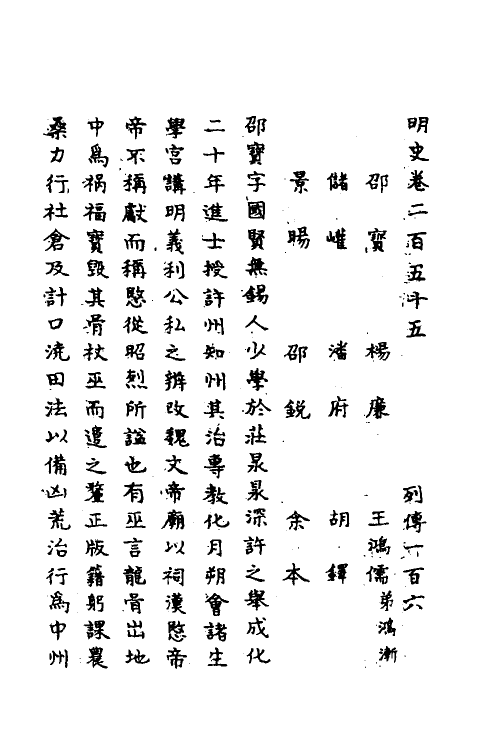 明史卷二百五十五 列傳一百六
邵寶 楊廉 王鴻儒弟鴻漸
儲巏 潘府 胡鐸
景暘 邵銳 余本
邵寶字國賢無錫人少學於莊㫤㫤深許之舉成化
二十年進士授許州知州其治專教化月朔會諸生
學宮講明義利公私之辨改魏文帝廟以祠漢愍帝
帝不稱獻而稱愍從昭烈所諡也有巫言龍骨出地
中為禍福寶毀其骨杖巫而遣之釐正版籍躬課農
桑力行社倉及計口澆田法以備凶荒治行為中州